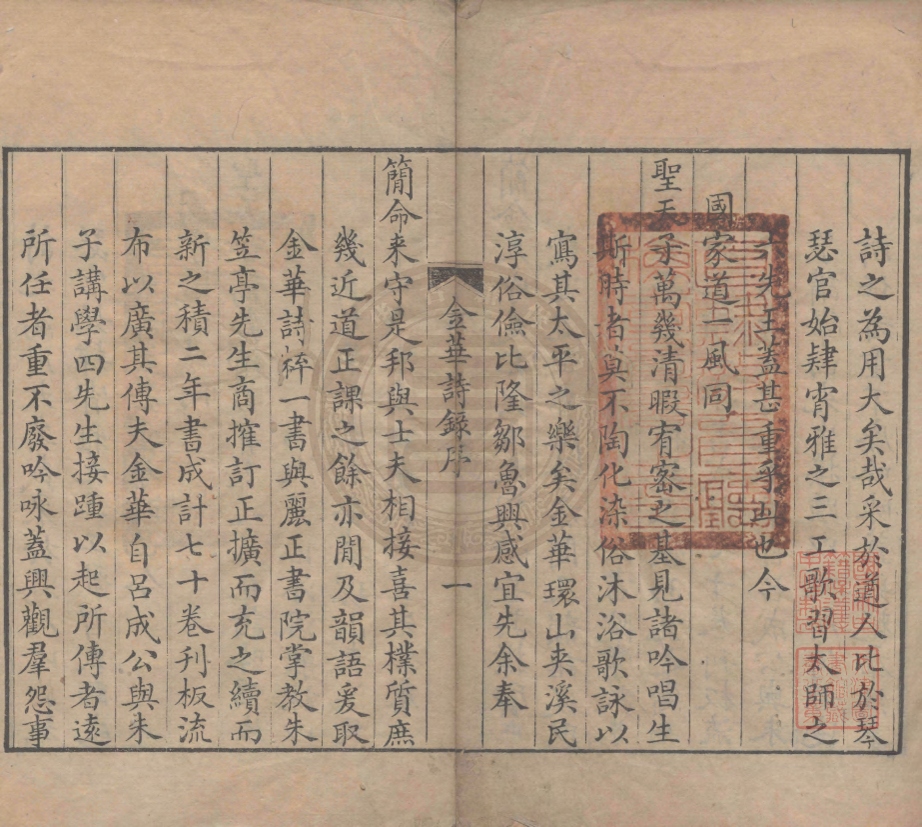 詩之為用大矣哉采於遒人比於琴
瑟官始肄宵雅之三工歌習太師之
六先王蓋甚重乎此也今
國家道一風同
聖天子萬幾清暇宥密之基見諸吟唱生
斯時者莫不陶化染俗沐浴歌詠以
寫其太平之樂矣金華環山夾溪民
淳俗儉比隆鄒魯興感宜先余奉
金華詩錄序 一
簡命来守是邦與士夫相接喜其樸質庶
幾近道正課之餘亦閒及韻語爰取
金華詩稡一書與麗正書院掌教朱
笠亭先生商搉訂正擴而充之續而
新之積二年書成計七十卷刊板流
布以廣其傳夫金華自呂成公與朱
子講學四先生接踵以起所傳者遠
所任者重不廢吟咏蓋興觀羣怨事